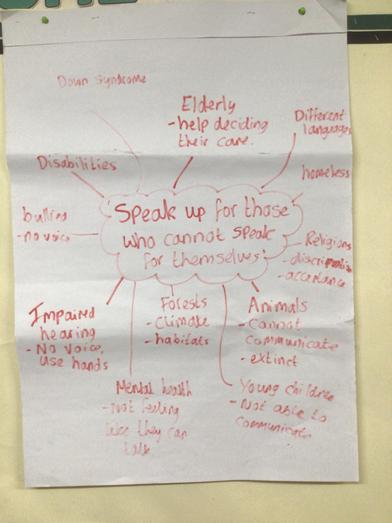 Down syndrome
Elderly
- help deciding
their care.
Different
languages
Disabilities
homeless
bullied
- no voice
Speak up for those
who cannot speak
for themselves
Religions
-
- acceptance
Impaired
hearing
- No voice,
use hands
Forests
- climate
- habitats
Animals
- cannot
communicate
- extinct
Mental health
- Not feeling
like they can
talk
Young children
- Not able to
communicate